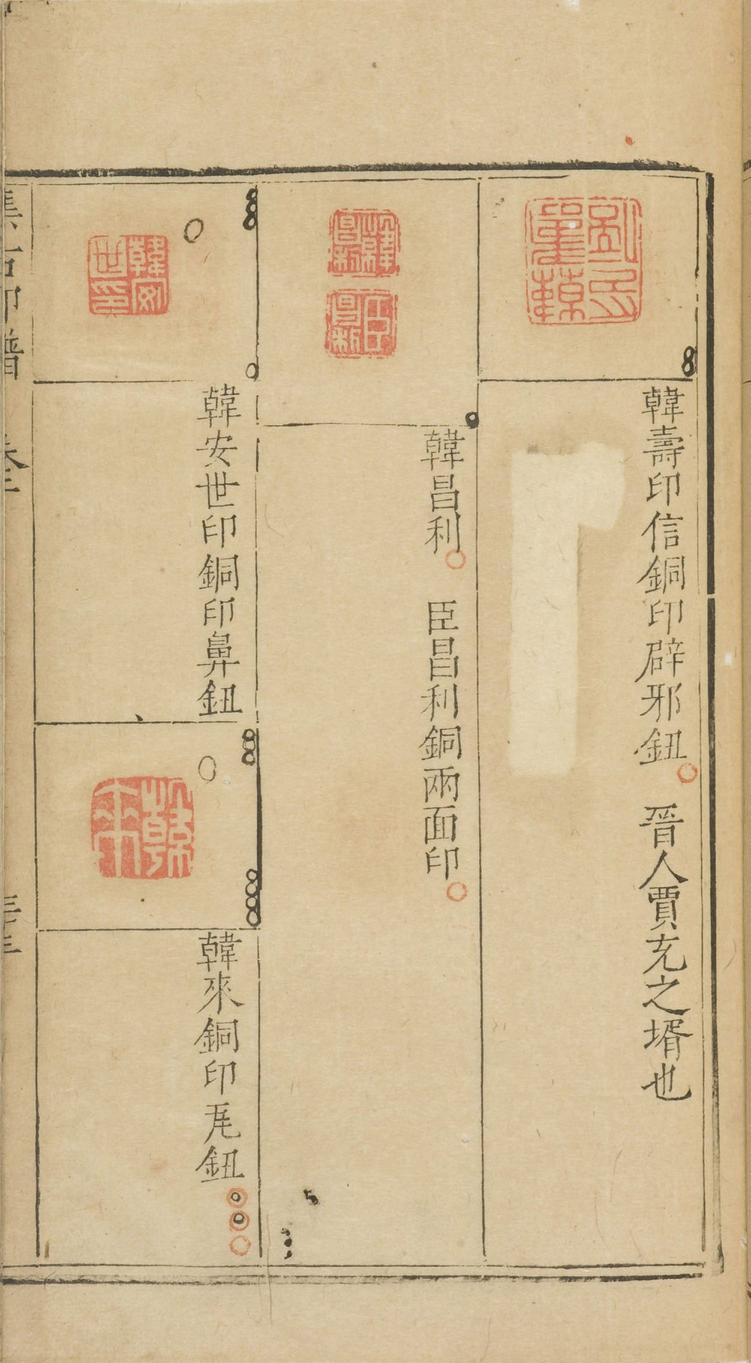 韓壽印信銅印辟邪鈕 晉人賈充之壻也
韓昌利 臣昌利銅兩面印
韓安世印銅印鼻鈕
韓來銅印瓦鈕
集古印譜